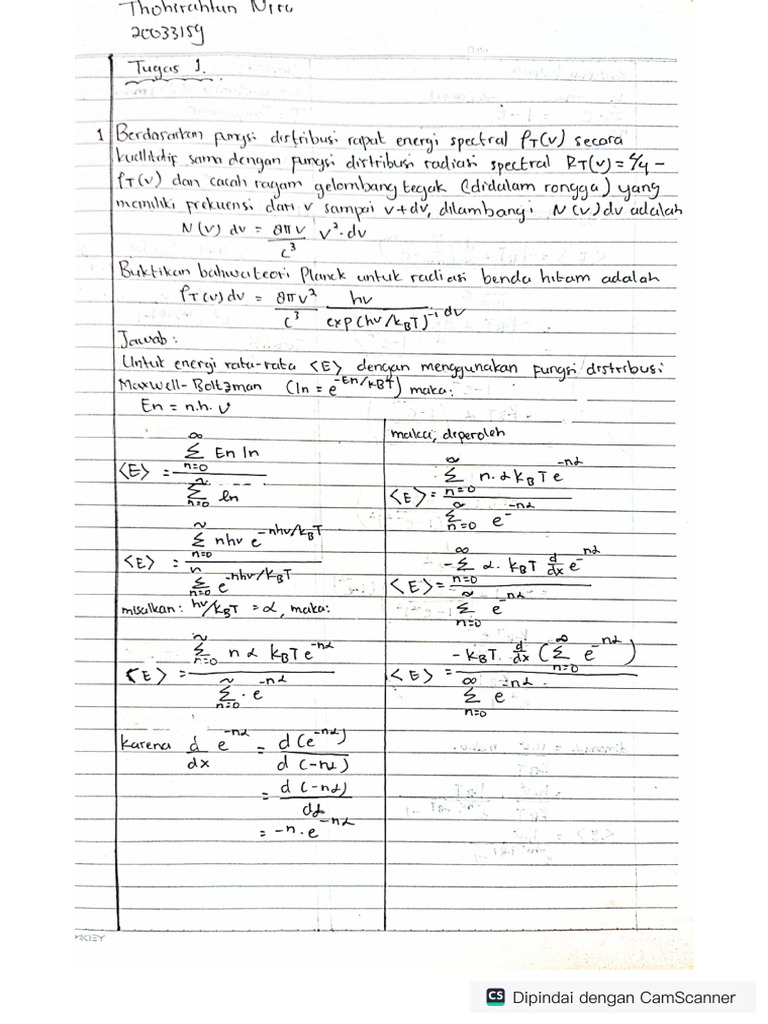 Thohirahtun Nisa
20033159
Tugas 1.
1 Berdasarkan fungsi distribusi rapat energi spectral ρT(v) secara
kualitatif sama dengan fungsi distribusi radiasi spectral RT(v) = c/4 -
ρT(v) dan cacah ragam gelombang tegak (didalam rongga) yang
memiliki frekuensi dari v sampai v+dv, dilambangi N(v)dv adalah
N(v) dv = 8πv/c³ v²·dv
Buktikan bahwa teori Planck untuk radiasi benda hitam adalah
ρT(v)dv = 8πv²/c³ hv/exp(hv/kBT)⁻¹ dv
Jawab:
Untuk energi rata-rata <E> dengan menggunakan fungsi distribusi
Maxwell-Boltzman (ln = e^-En/kBT) maka:
En = n.h.v
<E> = ∑n=0^∞ En ln / ∑n=0^∞ ln
<E> = ∑n=0^∞ nhv e^-nhv/kBT / ∑n=0^n e^-nhv/kBT
misalkan: hv/kBT = α, maka:
<E> = ∑n=0^∞ n α kBT e^-nα / ∑n=0^∞ · e^-nα
Karena d/dx e^-nα = d(e^-nα)/d(-nα)
= d(-nα)/dα
= -n·e^-nα
maka, diperoleh
<E> = ∑n=0^∞ n·α kBT e^-nα / ∑n=0^∞ e^-nα
<E> = -∑n=0^∞ α·kBT d/dx e^nα / ∑n=0^∞ e^-nα
<E> = -kBT d/dx (∑n=0^∞ e^-nα) / ∑n=0^∞ e^-nα
CS Dipindai dengan CamScanner